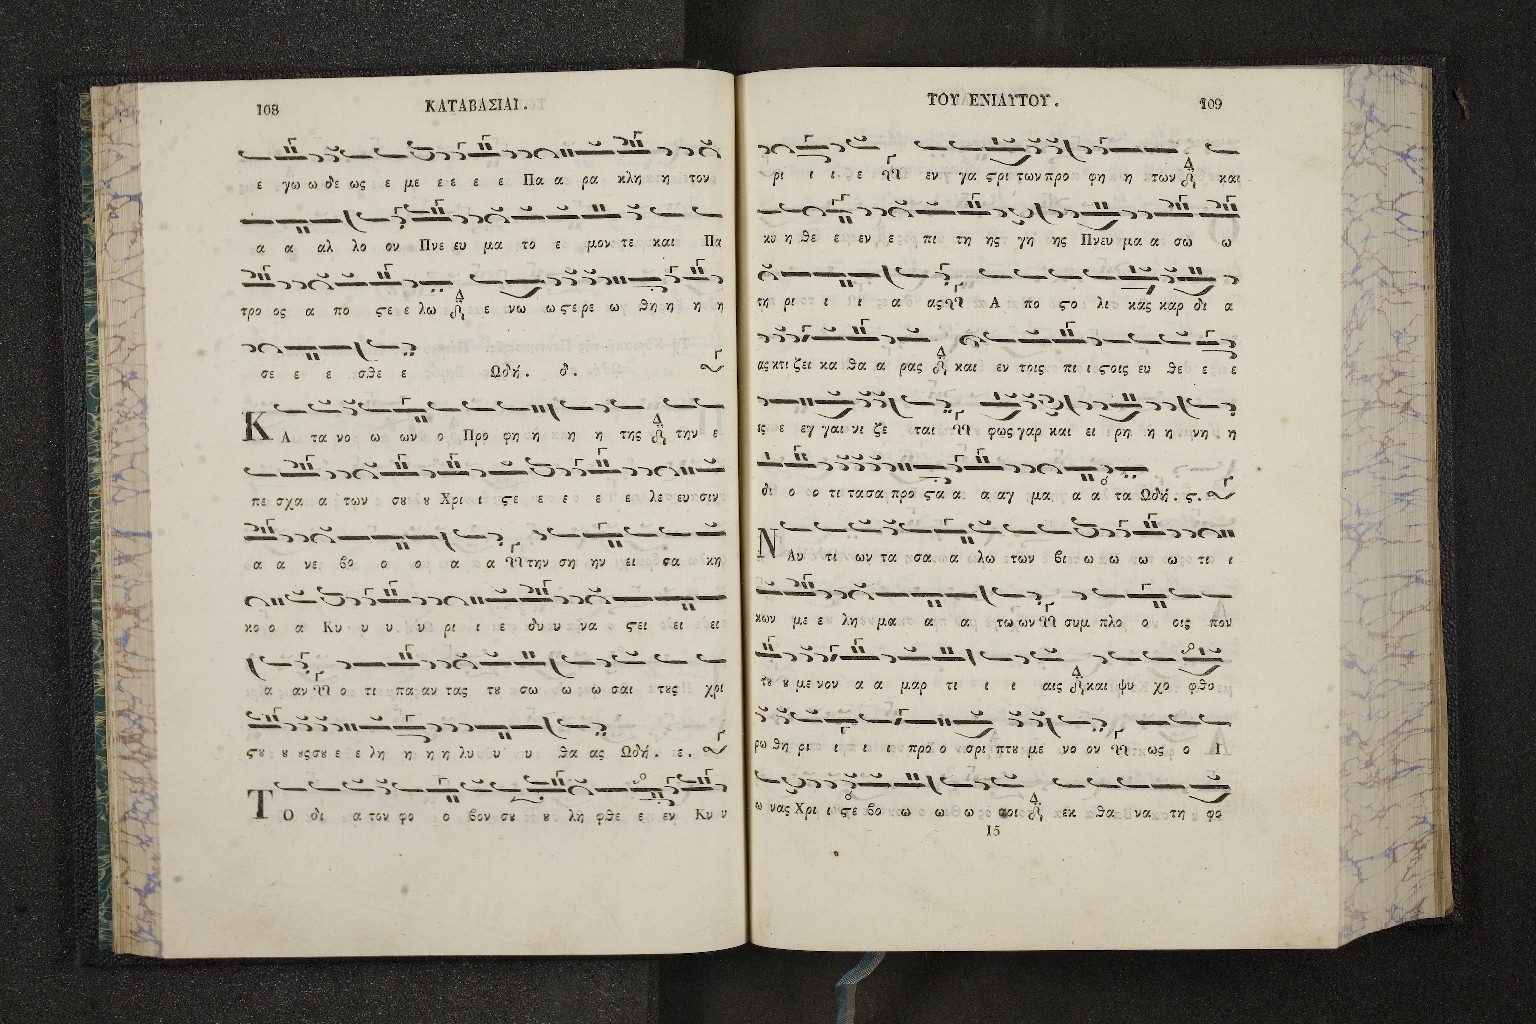 108
ΚΑΤΑΒΑΣΙΑΙ.
ε γω ω δε ως ε με ε ε ε ε Πα α ρα κλη η τον
α α αλ λο ον Πνε ευ μα το ε μον τε και Πα
τρο ος α πο ϛε ε λω ε νω ω ϛε ρε ω θη η η η
σε ε ε σθε ε Ωδή. δ.
ΚΑ τα νο ω ων ο Προ φη η κη η της την ε
πε σχα α των σου ου Χρι ι ϛε ε ε ε ε λε ευ σιν
α α νε βο ο ο α α την ση ην ει σα κη
κο ο α Κυ υ υ υ ρι ι ε δυ υ να ϛει ει ει
α αν ο τι πα αν τας του σω ω ω σαι τους χρι
ϛου ου ους σου ε ε λη η η η λυ υ υ θα ας Ωδή. ε.
ΤΟ δι α τον φο ο βον σου ου λη φθε ε εν Κυ υ
ΤΟΥ ΕΝΙΑΥΤΟΥ.
109
ρι ι ι ε εν γα ϛρι των προ φη η των και
κυ η θε ε εν ε πι τη ης γη ης Πνευ μα α σω ω
τη ρι ι ι α ας Α πο ϛο λι κας καρ δι α
ας κτι ζει κα θα α ρας και εν τοις πι ι ϛοις ευ θε ε ε
ις ε εγ γαι νι ζε ται φως γαρ και ει ρη η η νη η
δι ο ο τι τα σα προ ϛα α α αγ μα α α τα Ωδή. ϛ.
ΝΑυ τι ων τα σα α λω των βι ω ω ω ω τι ι
κων με ε λη μα α α τω ων συμ πλο ο οις πον
του ου με νον α α μαρ τι ι ι αις και ψυ χο φθο
ρω θη ρι ι ι ι προ ο σρι πτου με νο ον ως ο Ι
ω νας Χρι ι ϛε βο ω ω ω σοι εκ θα να τη φο
15